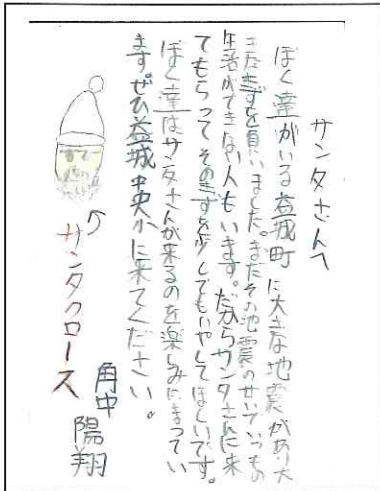 サンタさんへ
ぼく達がいる益城町に大きな地震があり大
きなきずを負いました。まだその地震のせいでいつもの
生活ができない人もいます。だからサンタさんに来
てもらってそのきずを少しでもいやしてほしいです。
ぼく達はサンタさんが来るのを楽しみにまってい
ます。ぜひ益城中央小に来てください。
サンタクロース
角中 陽翔